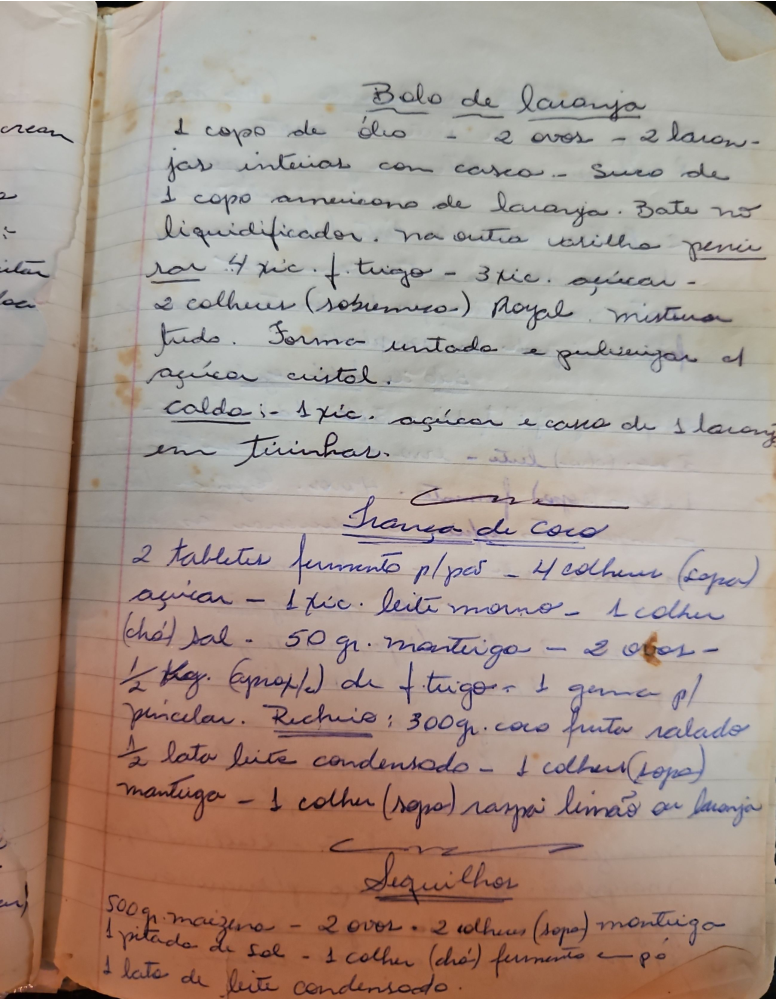 Bolo de laranja
1 copo de óleo - 2 ovos - 2 laran-
jas inteiras com casca - Suco de
1 copo americano de laranja. Bate no
liquidificador. na outra vasilha penei
rar 4 xic. f. trigo - 3 xic. açúcar -
2 colheres (sobremesa) Royal. mistura
tudo. Forma untada e pulverizar c/
açúcar cristal.
Calda :- 1 xic. açúcar e casca de 1 laranj
em tirinhas.
Trança de Coco
2 tabletes fermento p/ pão - 4 colheres (sopa)
açúcar - 1 xic. leite morno - 1 colher
(chá) sal - 50 gr. manteiga - 2 ovos -
1/2 Kg. (aprox/e) de f. trigo - 1 gema p/
pincelar. Recheio: 300gr. coco fruta ralado
1/2 lata leite condensado - 1 colheres (sopa)
manteiga - 1 colher (sopa) raspa limão ou laranja
Sequilhos
500gr. maizena - 2 ovos - 2 colheres (sopa) manteiga
1 pitada de sal - 1 colher (chá) fermento em pó
1 lata de leite condensado.
crean